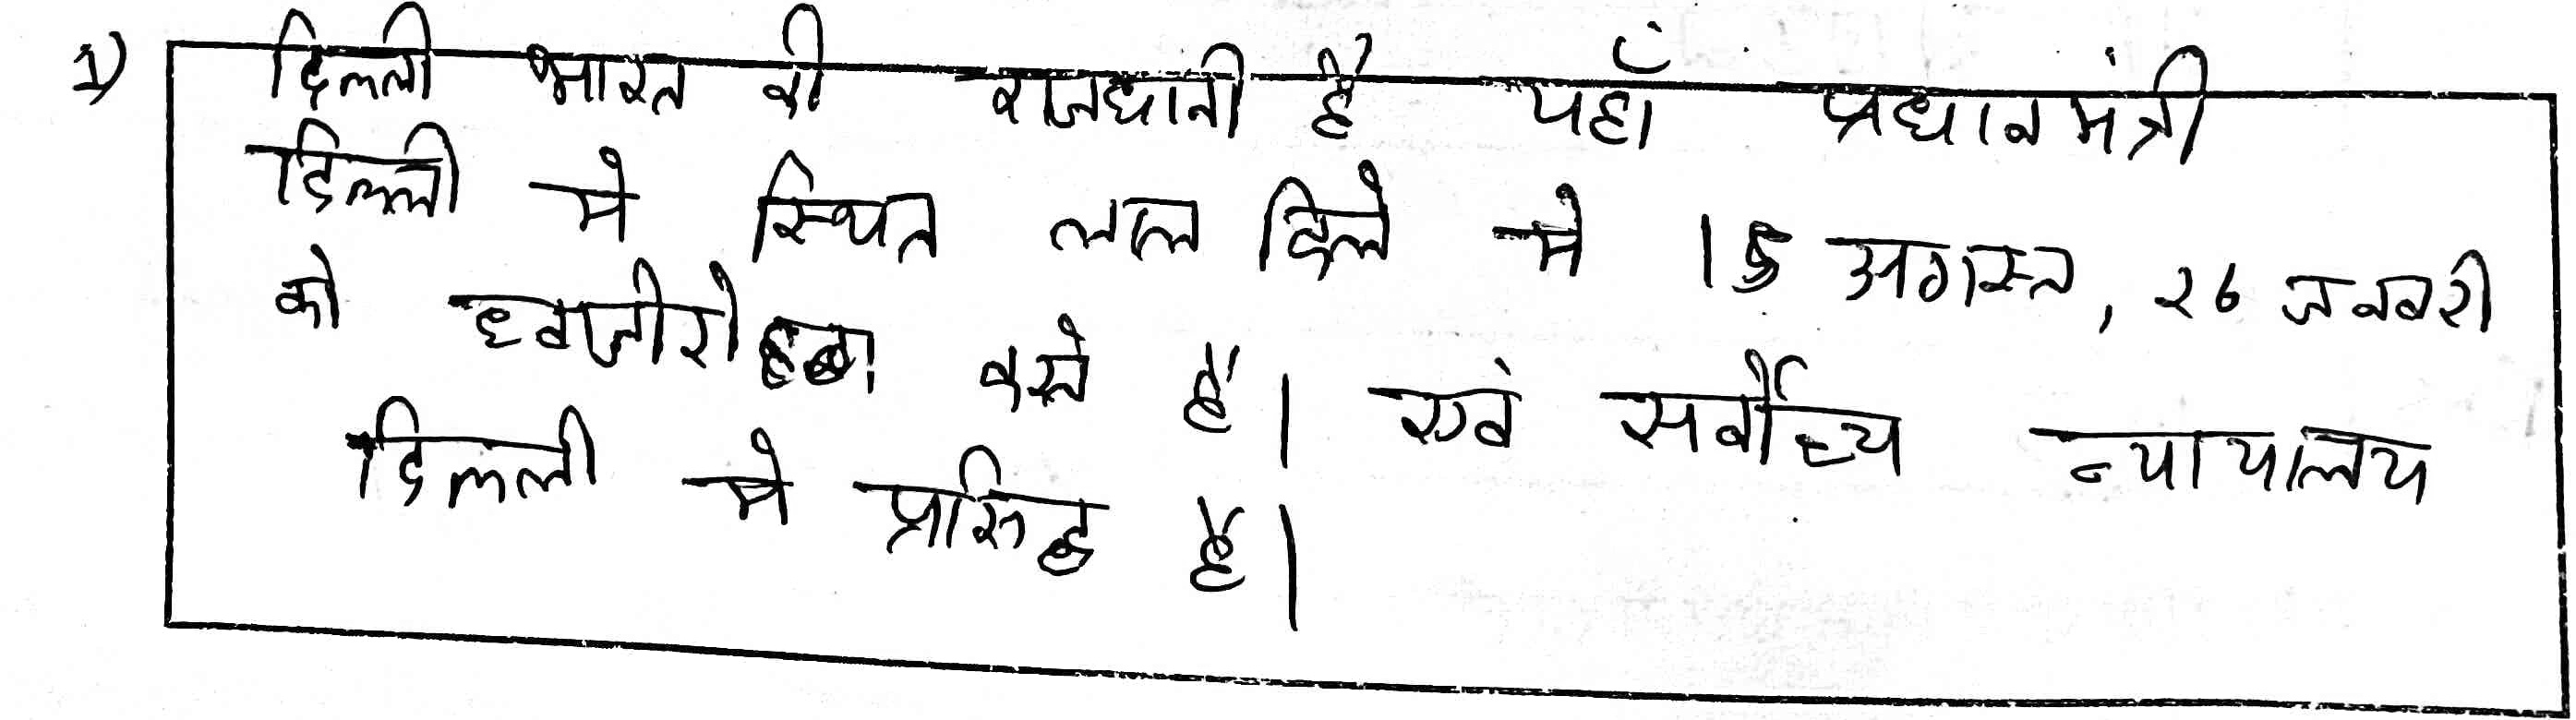 1) दिल्ली भारत की राजधानी है यहाँ प्रधानमंत्री
दिल्ली मे स्थित लाल किले मे 15 अगस्त, 26 जनवरी
को करते है। एवं सर्वोच्य न्यायालय
दिल्ली मे है।